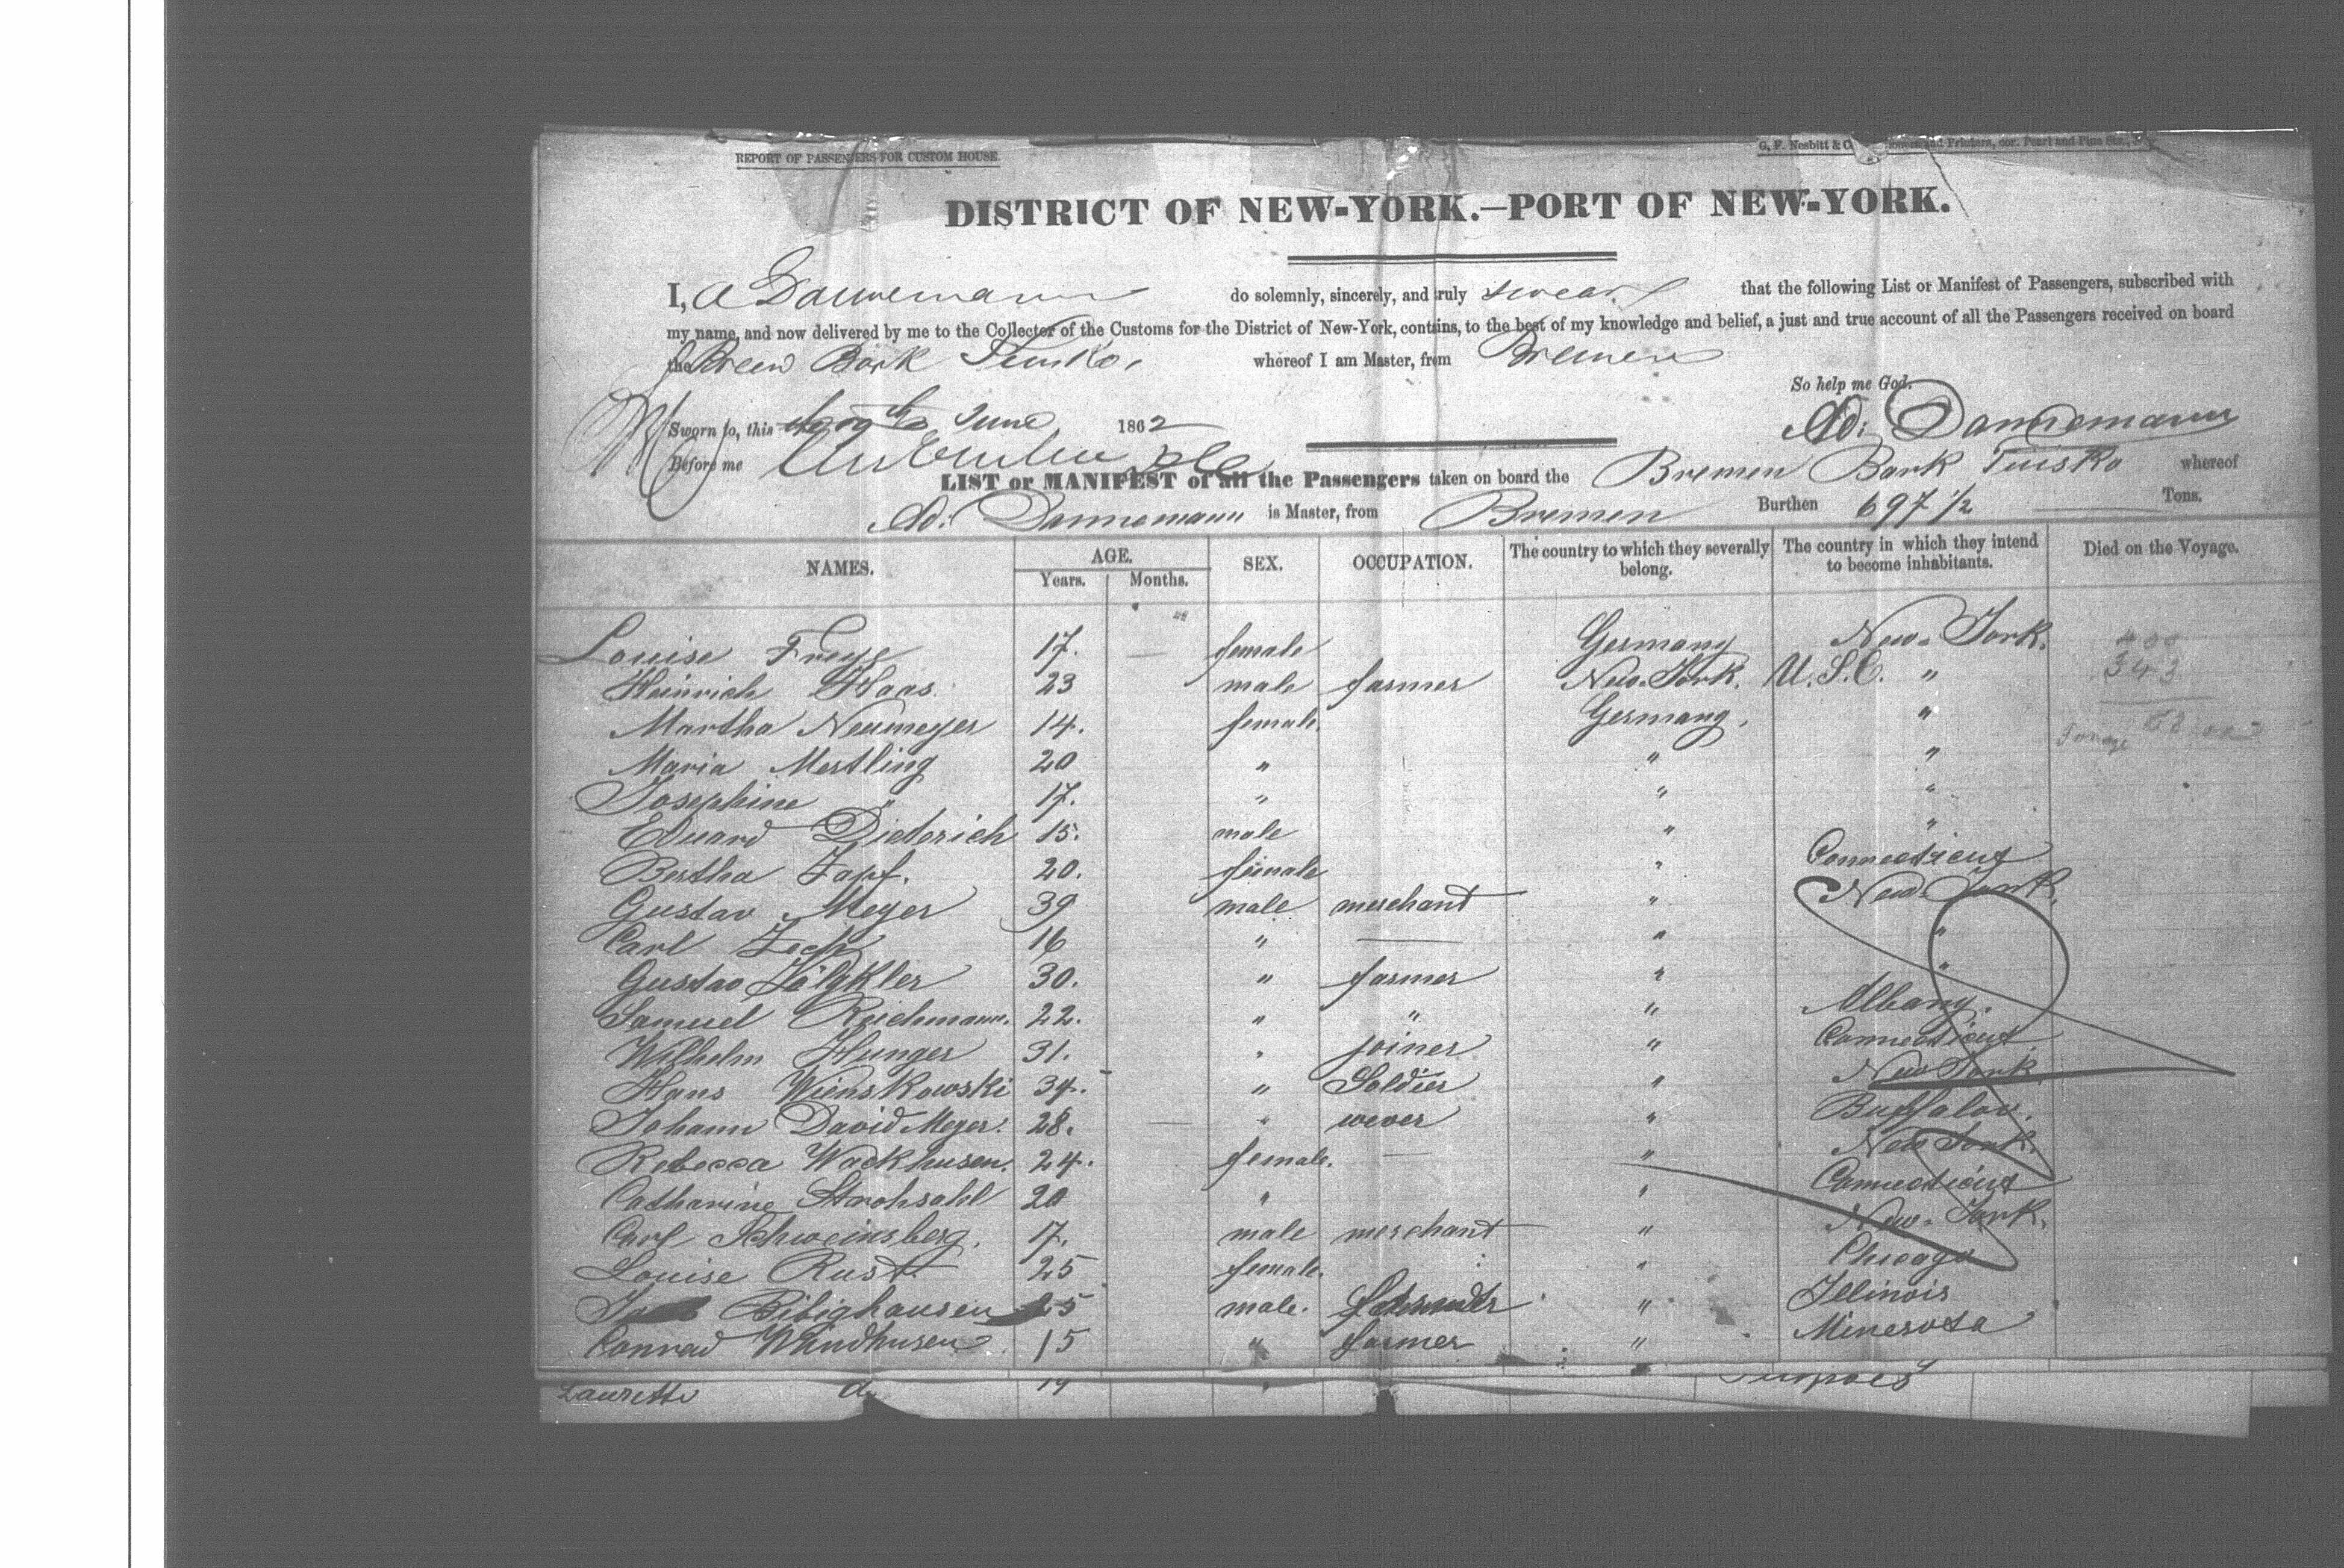 REPORT OF PASSENGERS FOR CUSTOM HOUSE.
G. F. Nesbitt & C Printers, cor. Pearl and Pine Sts.,
DISTRICT OF NEW-YORK.—PORT OF NEW-YORK.
I, A Dannemann do solemnly, sincerely, and truly swear that the following List or Manifest of Passengers, subscribed with
my name, and now delivered by me to the Collector of the Customs for the District of New-York, contains, to the best of my knowledge and belief, a just and true account of all the Passengers received on board
the Brem Bark Tuisko, whereof I am Master, from Bremen
So help me God.
Sworn to, this June 1862 Ad: Dannemann
Before me
LIST or MANIFEST of all the Passengers taken on board the Bremen Bark Tuisko whereof
Ad: Dannemann is Master, from Bremen Burthen 697 1/2 Tons.
NAMES. AGE. SEX. OCCUPATION. The country to which they severally belong. The country in which they intend to become inhabitants. Died on the Voyage.
Years. Months.
Louise Freye 17. — female Germany New-York.
Heinrich Haas. 23 male farmer New-York. U.S.C. "
343
Martha Neumeyer 14. female. Germany. "
Maria Mestling 20 " " "
Josephine " 17. " " "
Eduard Dieterich 15. male " "
Bertha Zapf. 20. female " Connecticut
Gustav Meyer 39 male merchant " New-York.
Carl Zech 16 " — " "
Gustav 30. " farmer " "
Samuel Reichmann. 22. " " " Albany.
Wilhelm Hunger 31. " joiner " Connecticut
Hans Wienskowski 34. " Soldier " New York.
Johann David Meyer. 28. — " wever " Buffalou.
Rebecca Wackhusen. 24. female. — " New York.
Catharine Strohsahl 20 " " Connecticut
Carl Schweinsberg. 17. male merchant " New-York.
Louise Rust 25 female. " Chicago
Bibighausen 25 male. " Illinois
Conrad Windhusen 15 " farmer " Minesota
Laurette do 19 "